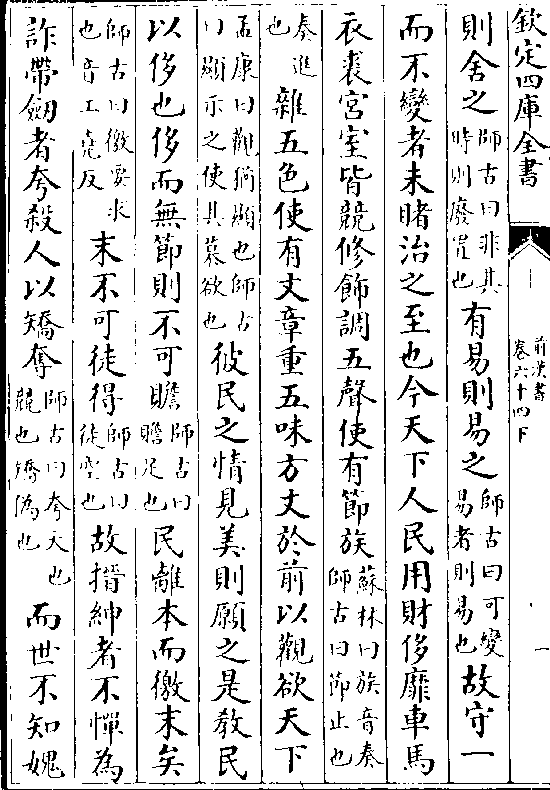 欽定四庫全書
前漢書
卷六十四下
一
則舍之師古曰非其時則廢置也有易則易之師古曰可變易者則易也故守一
而不變者未睹治之至也今天下人民用財侈靡車馬
衣裘宮室皆競修飾調五聲使有節族蘇林曰族音奏師古曰節止也
奏進也雜五色使有文章重五味方丈於前以觀欲天下
孟康曰觀猶顯也師古曰顯示之使其慕欲也彼民之情見美則願之是教民
以侈也侈而無節則不可贍師古曰贍足也民離本而徼末矣
師古曰徼要求也音工堯反末不可徒得師古曰徒空也故搢紳者不憚為
詐帶劒者夸殺人以矯奪師古曰夸大也競也矯偽也而世不知媿